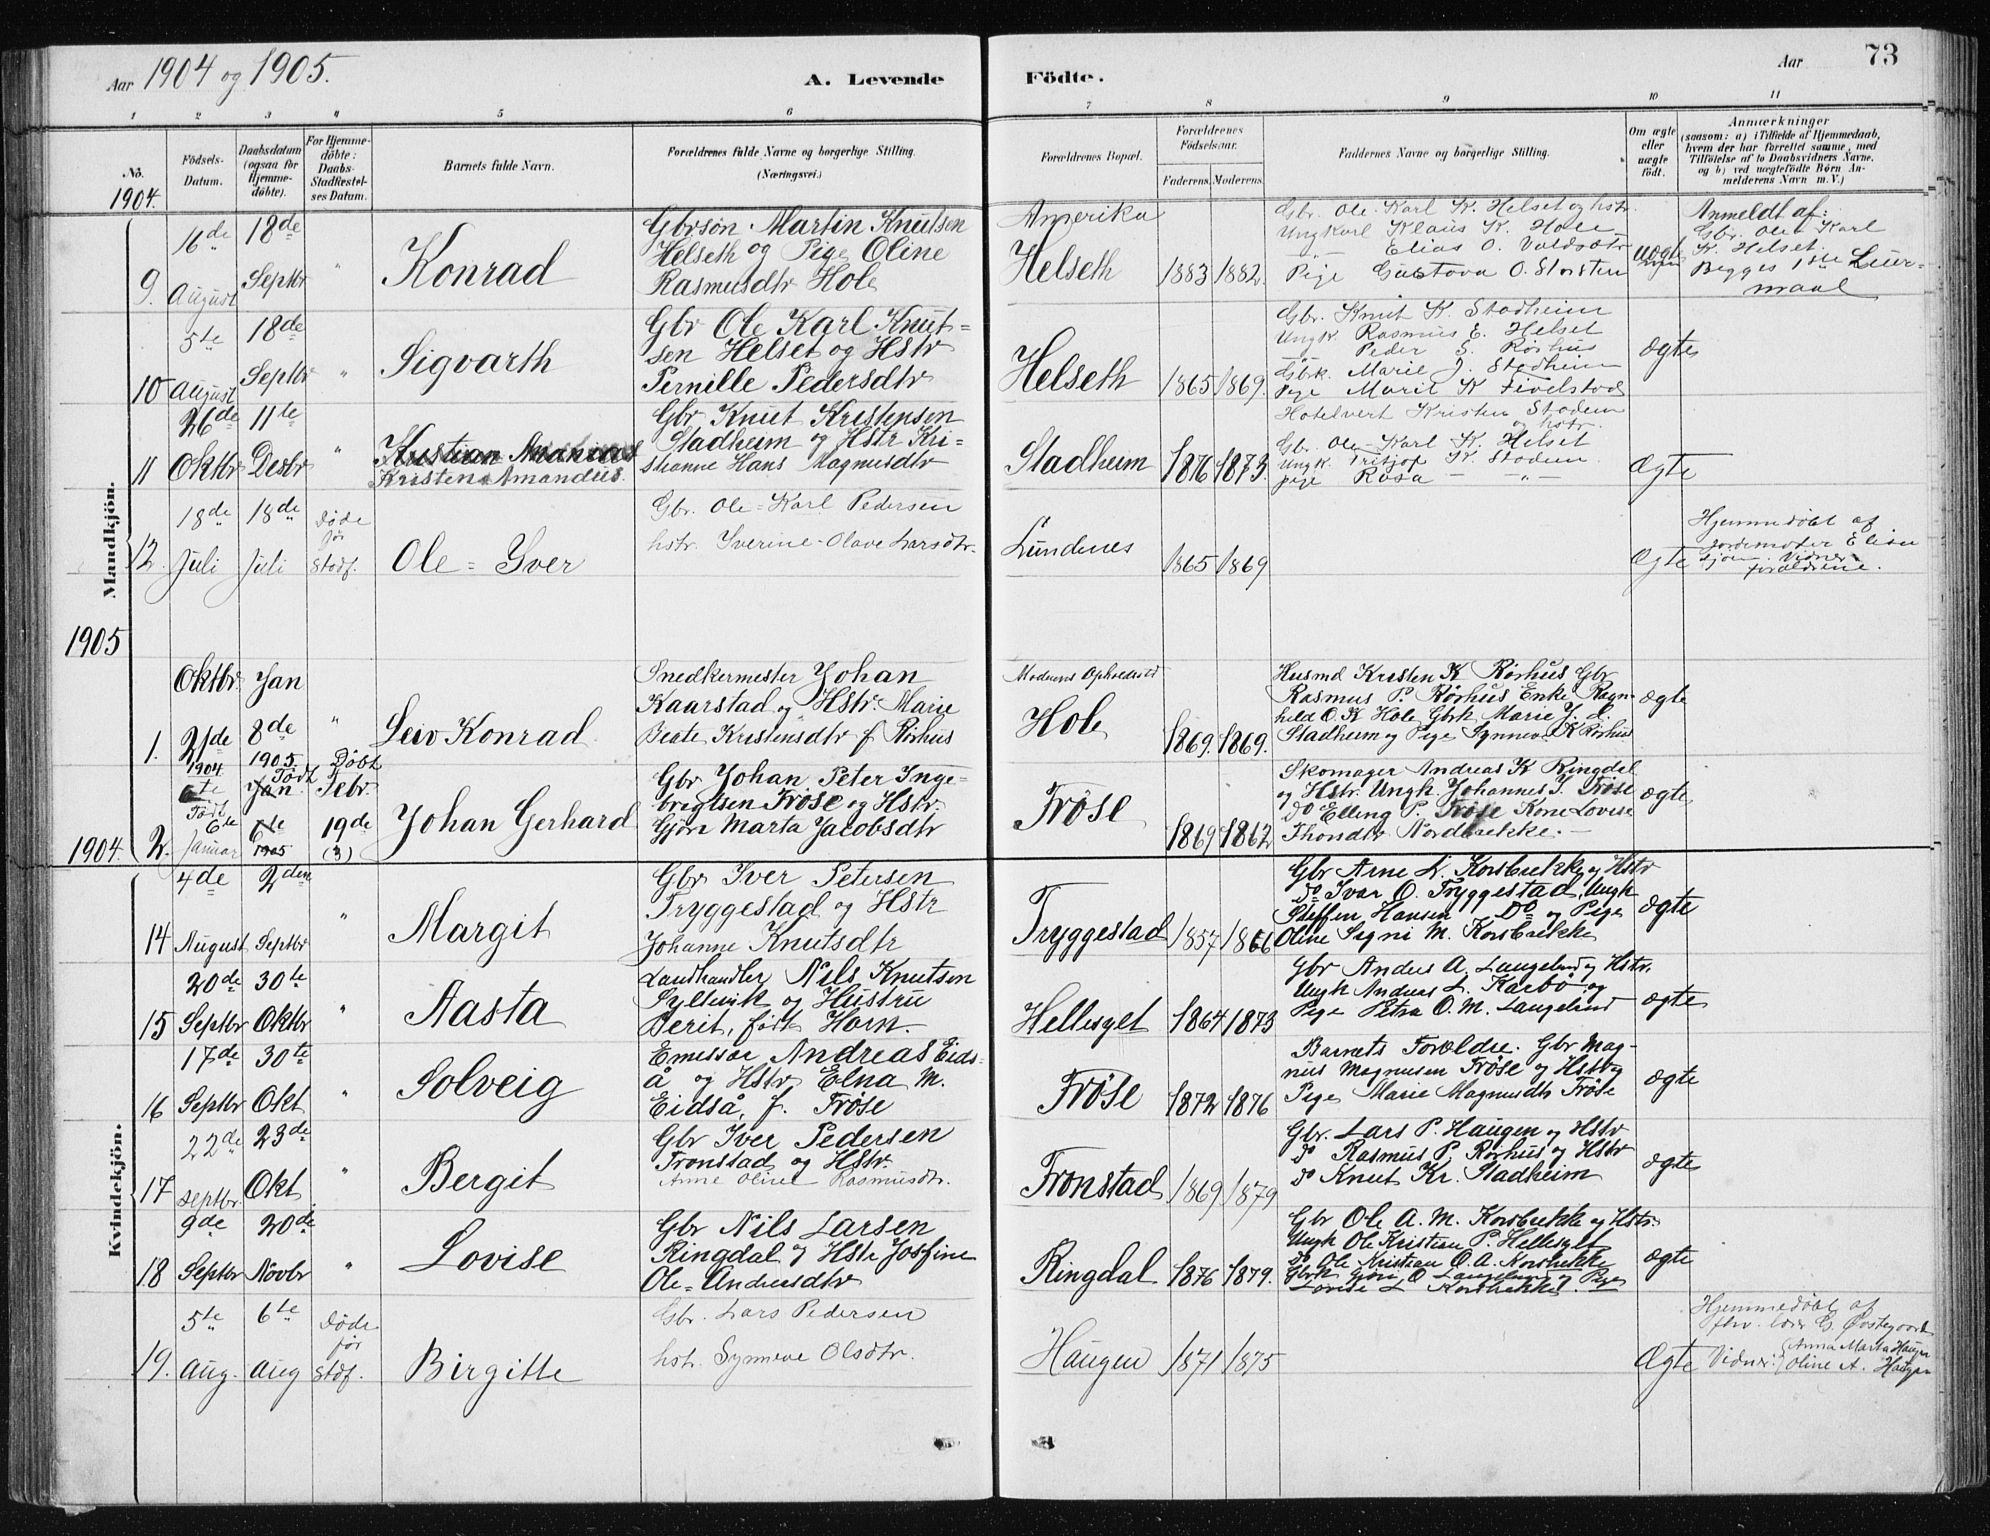 Aar 1904 og 1905.
A. Levende Födte.
Aar
73
1 2 3 4 5 6 7 8 9 10 11
No.
Födsels-Datum.
Daabsdatum (ogsaa for Hjemmedöbte).
For Hjemmedöbte: Daabs-Stadfæstelses Datum.
Barnets fulde Navn.
Forældrenes fulde Navne og borgerlige Stilling. (Næringsvei.)
Forældrenes Bopæl.
Forældrenes Födselsaar.
Faderens. Moderens.
Faddernes Navne og borgerlige Stilling.
Om ægte eller uægte födt.
Anmærkninger
(saasom: a) i Tilfælde af Hjemmedaab, hvem der har forrettet samme, med Tilföielse af to Daabsvidners Navne, og b) ved uægtefödte Børn Anmelderens Navn m. V.)
1904.
Mandkjön.
9. 16de August
18de Septbr
"
Konrad
Gbrsøn Martin Knutsen
Helseth og Pige Oline
Rasmusdtr Hole
Amerika
Helseth
1883 1882.
Gbr. Ole Karl K. Helset og hstr.
Ungkarl Klaus K. Hole
Elias O. Valdsætr
Pige Gustava O. Storsten
uægte
Anmeldt af:
Gbr. Ole Karl
K. Helset.
Begges 1ste Leiermaal
10 5te August
18de Septbr
"
Sigvarth
Gbr Ole Karl Knut=
sen Helset og Hstr
Pernille Pedersdtr
Helseth
1865 1869.
Gbr. Knut K. Stadheim
Ungk Rasmus E. Helset
Peder S. Rørhus
Gbk. Marie J. Stadheim
Pige Marit K Fivelstad
ægte
11 26de Oktbr
11te Desbr
"
Kristian
Kristen Amandus.
Gbr Knut Kristensen
Stadheim og Hstr Kri=
stianne Hans Magnusdtr
Stadheim
1876 1873.
Hotelvert Kristen Stadem
og hstr.
Gbr. Ole-Karl K. Helset
Ungk. Fritjof K. Stadem
pige Rosa — " —
Ægte
12. 18de Juli
18de Juli
Døde før Stadf.
Ole=Iver
Gbr. Ole-Karl Pedersen
hstr. Iverine-Olave Larsdtr.
Lundenes
1865 1869
Ægte
Hjemmedøbt af
Jordemoder Elise
Gjøen. Vidner
forældrene.
1905
1. Oktbr 21de 1904
Jan 8de 1905.
"
Leiv Konrad
Snedkermester Johan
Kaarstad og Hstr Marie
Beate Kristensdtr f. Rørhus
Moderens Opholdssted
Hole
1869. 1869.
Husmd Kristen K Rørhus Gbr
Rasmus P. Rørhus Enke Ragn-
hild O. K Hole Gbrk Marie J. L.
Stadheim og Pige Synneve K Rørhus
ægte
2. Født 6te Januar
Født Jan 6te 1905
Døbt Febr. 19de (3)
Johan Gerhard
Gbr Johan Peter Inge=
brigtsen Frøse og Hstr.
Gjørn Marta Jacobsdtr
Frøse
1869 1862
Skomager Andreas K Ringdal
og Hstr. Ungk Johannes J. Frøse
do Elling P. Frøse Kone Lovise
Thondtr Nordbrekke. —
ægte
1904.
Kvindekjön.
14 4de August
2den Septbr
"
Margit
Gbr Iver Petersen
Tryggestad og Hstr
Johanne Knutsdtr
Tryggestad
1857 1866
Gbr Arne L. Korsbrekke og Hstr
do Ivar O. Tryggestad, Ungk
Steffen Hansen Do og Pige
Oline Signi M. Korsbrekke
ægte
15 20de Septbr
30te Oktbr
"
Aasta
Landhandler Nils Knutsen
Syltevik og Hustru
Berit, født Horn.
Hellesylt
1864 1873
Gbr Anders A. Langelnd og Hstr.
Ungk Andreas L. Karbø og
Pige Petra O. M. Langelnd
ægte
16 17de Septbr
30te Okt
"
Solveig
Emissær Andreas Eids=
å og Hstr Elna M.
Eidså, f. Frøse
Frøse
1872 1876
Barnets Forældre. Gbr Mag-
nus Magnusen Frøse og Hstr og
Pige Marie Magnusdtr Frøse
ægte
17 22de Septbr.
23de Okt
"
Bergit
Gbr Iver Pedersen
Tronstad og Hstr.
Anne Oline Rasmusdtr.
Tronstad
1869 1879
Gbr. Lars P. Haugen og Hstr
do Rasmus P. Rørhus og Hstr
do Knut Kr. Stadheim
ægte
18 9de Septbr
20de Novbr
"
Lovise
Gbr Nils Larsen
Ringdal og Hstr Josfine
Ole=Andersdtr
Ringdal
1876 1879.
Gbr Ole A. M. Korsbrekke og Hstr.
Ungk Ole Kristian P. Hellesylt
do Ole Kristian O. A. Korsbrekke
Gbrk Gjøri O Langelnd og Pige
Lovise L Korsbrekke.
ægte
19. 5te Aug.
6te Aug
Døde før Stdf.
Birgitte
Gbr. Lars Pedersen
hstr. Synneve Olsdtr.
Haugen
1871 1875
Ægte
Hjemmedøbt af
fhv. lærer G. Øvstegaard
Vidner: Anna Marta Haugen
Oline A. Haugen